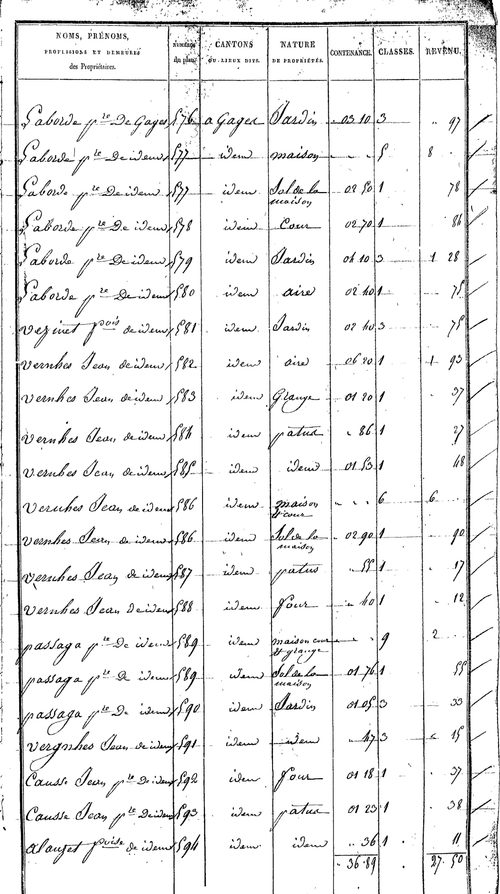 NOMS, PRÉNOMS, PROFESSIONS ET DEMEURES des Propriétaires. Numéros du plan CANTONS OU LIEUX DITS. NATURE DE PROPRIÉTÉS. CONTENANCE. CLASSES. REVENU.
Laborde pre De Gages 576 a Gages Jardin 03 10 3 " 97
Laborde pre De idem 577 idem maison " " 5 8 "
Laborde pre De idem 577 idem Sol de la maison 02 50 1 78
Laborde pre De idem 578 idem Cour 02 70 1 84
Laborde pre De idem 579 idem Jardin 04 10 3 1 28
Laborde pre De idem 580 idem aire 02 40 1 75
vezinet pois de idem 581 idem Jardin 02 40 3 75
vernhes Jean de idem 582 idem aire 06 20 1 1 93
vernhes Jean de idem 583 idem Grange 01 20 1 37
vernhes Jean de idem 584 idem patus " 86 1 27
vernhes Jean de idem 585 idem idem 01 53 1 48
vernhes Jean de idem 586 idem maison et cour " " 6 6 "
vernhes Jean de idem 586 idem Sol de la maison 02 90 1 90
vernhes Jean de idem 587 idem patus " 55 1 " 17
vernhes Jean de idem 588 idem four " 40 1 " 12
passaga pre De idem 589 idem maison cour et grange " " 9 2 "
passaga pre de idem 589 idem Sol de la maison 01 76 1 55
passaga pre De idem 590 idem Jardin 01 05 3 33
vergnhes Jean de idem 591 idem idem " 47 3 " 15
Causse Jean pre De idem 592 idem four 01 18 1 " 37
Causse Jean pre De idem 593 idem patus 01 23 1 " 38
alauzet poise de idem 594 idem idem " 36 1 11
" 36.89 27.50